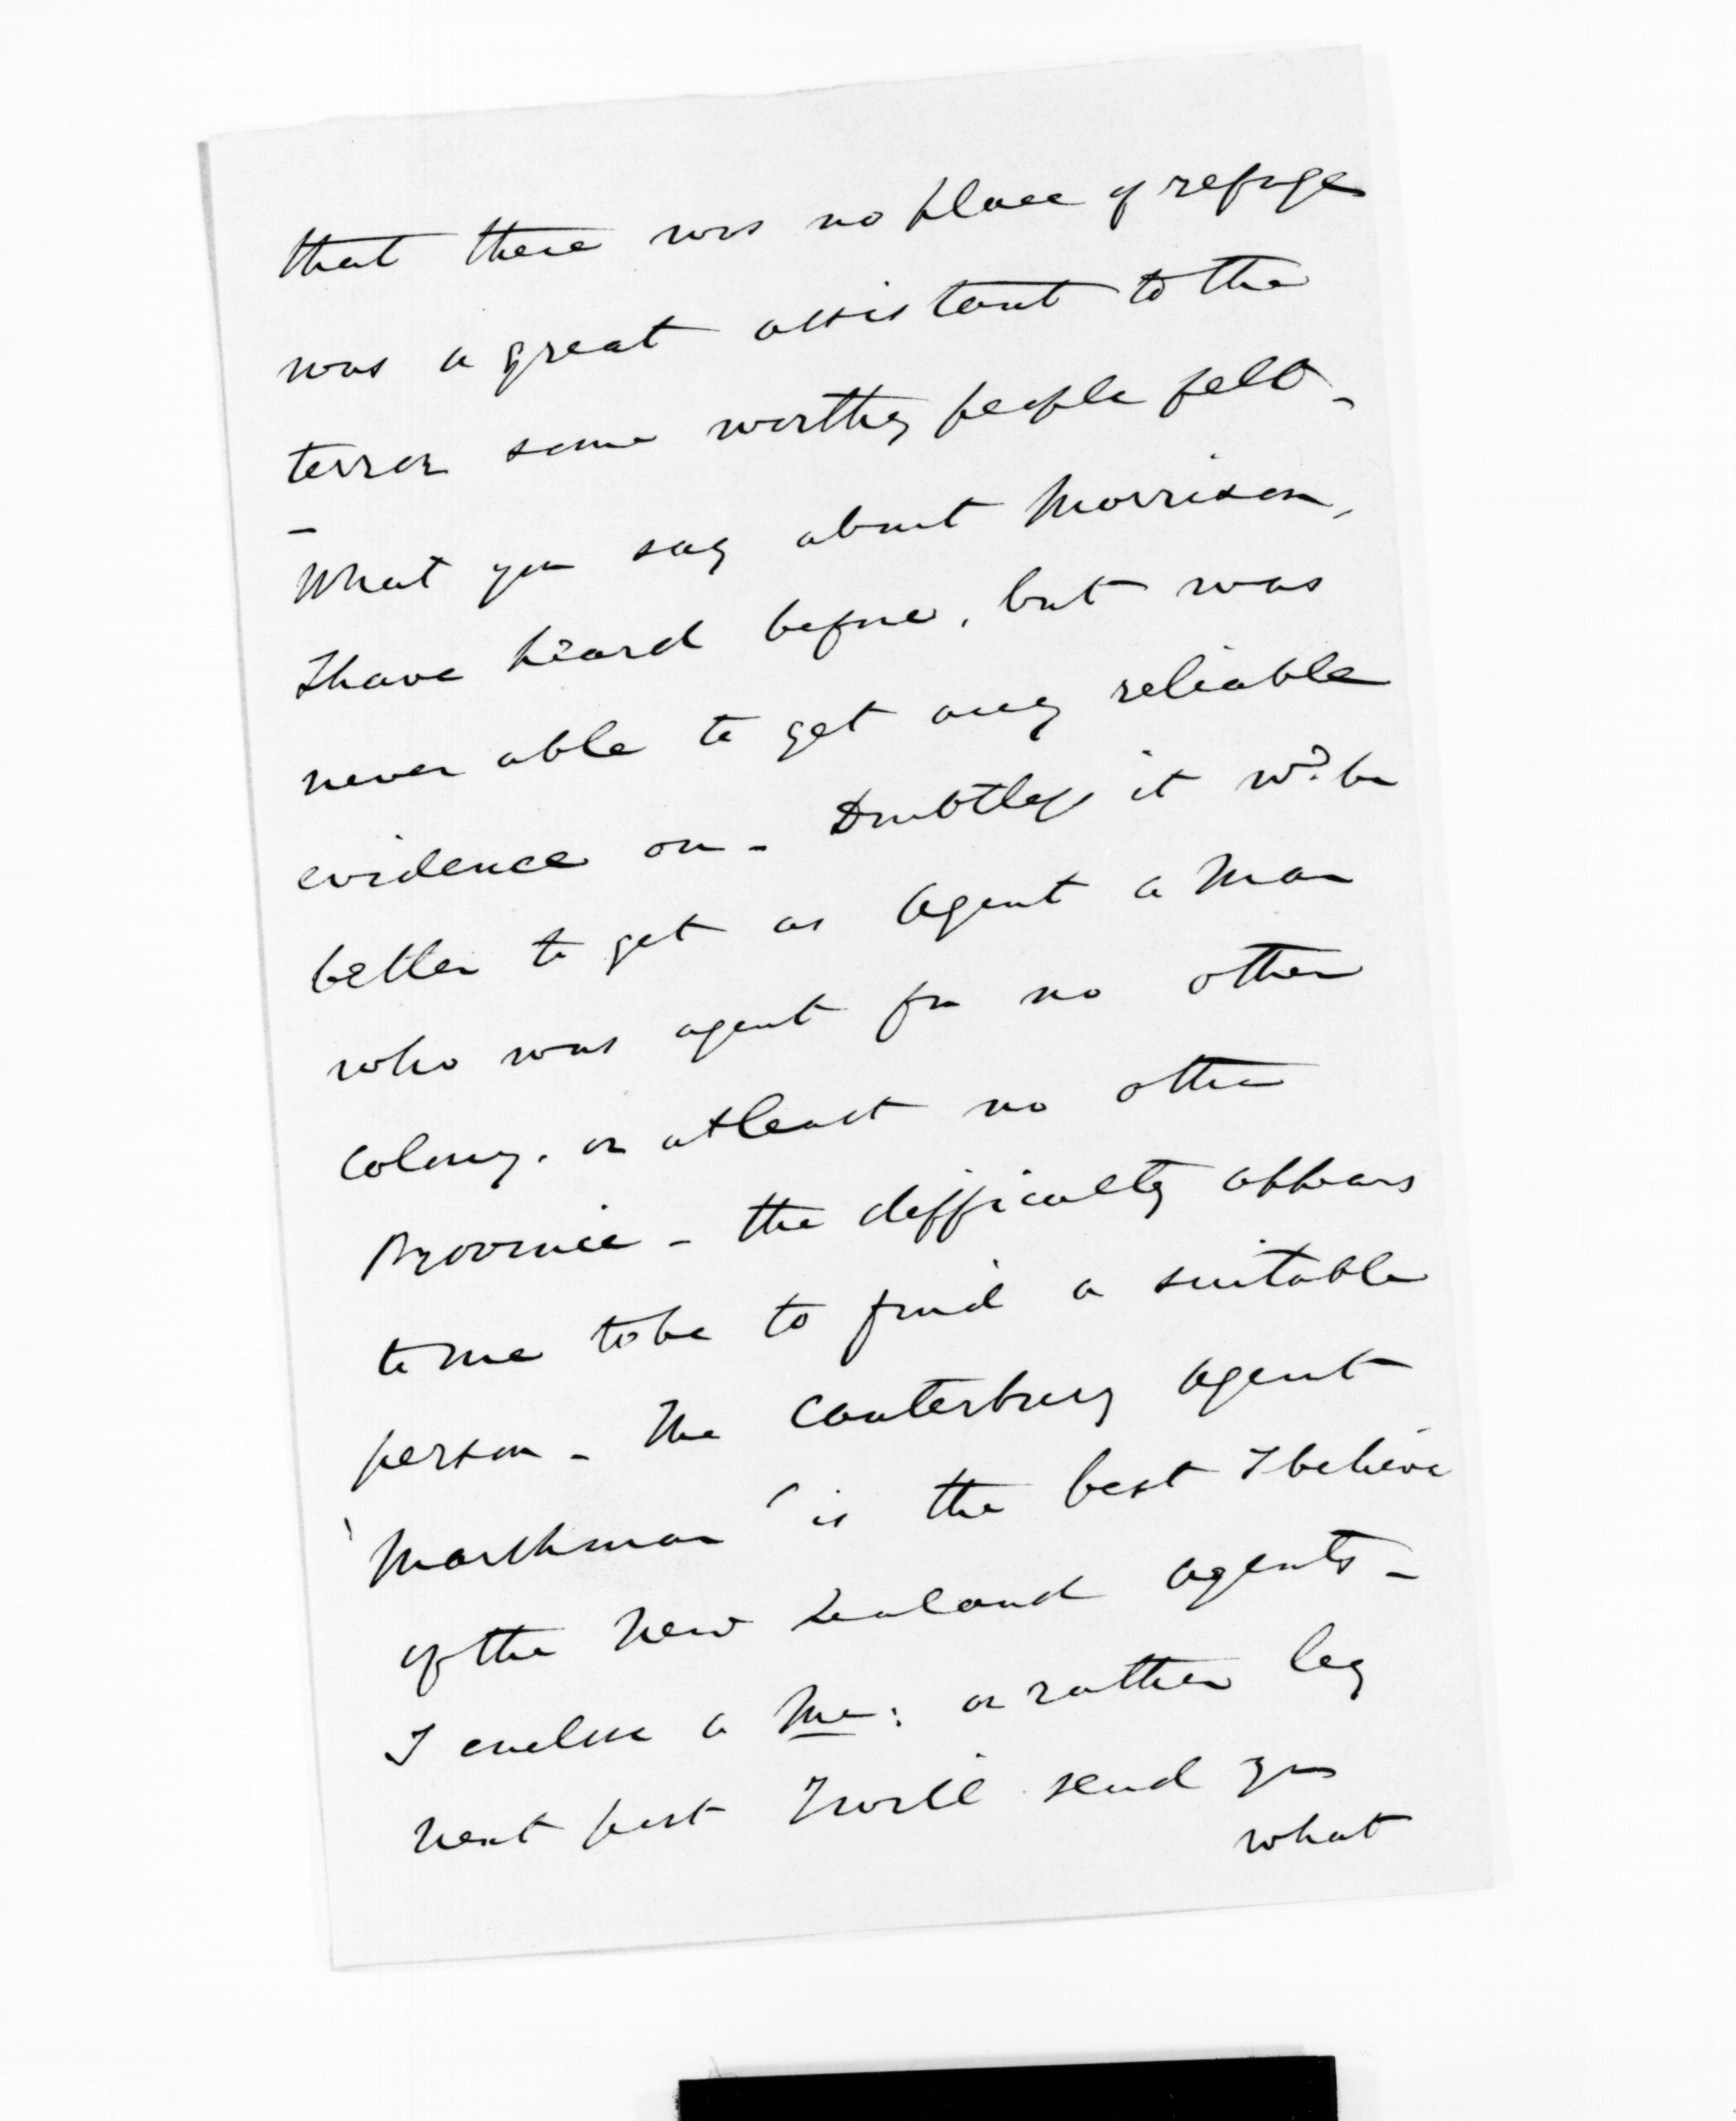 that there was no place of refuge
was a great assistant to the
terror some worthy people felt -
-
What you say about Morrison,
I have heard before, but was
never able to get any reliable
evidence on - Doubtless it wd. be
better to get as Agent a Man
who was agent for no other
Colony. or at least no other
Province - the difficulty appears
to me to be to find a suitable
person - The Canterbury Agent
'Marshman' is the best I believe
of the New Zealand Agents -
I enclose a : or rather by
next post I will send you
what